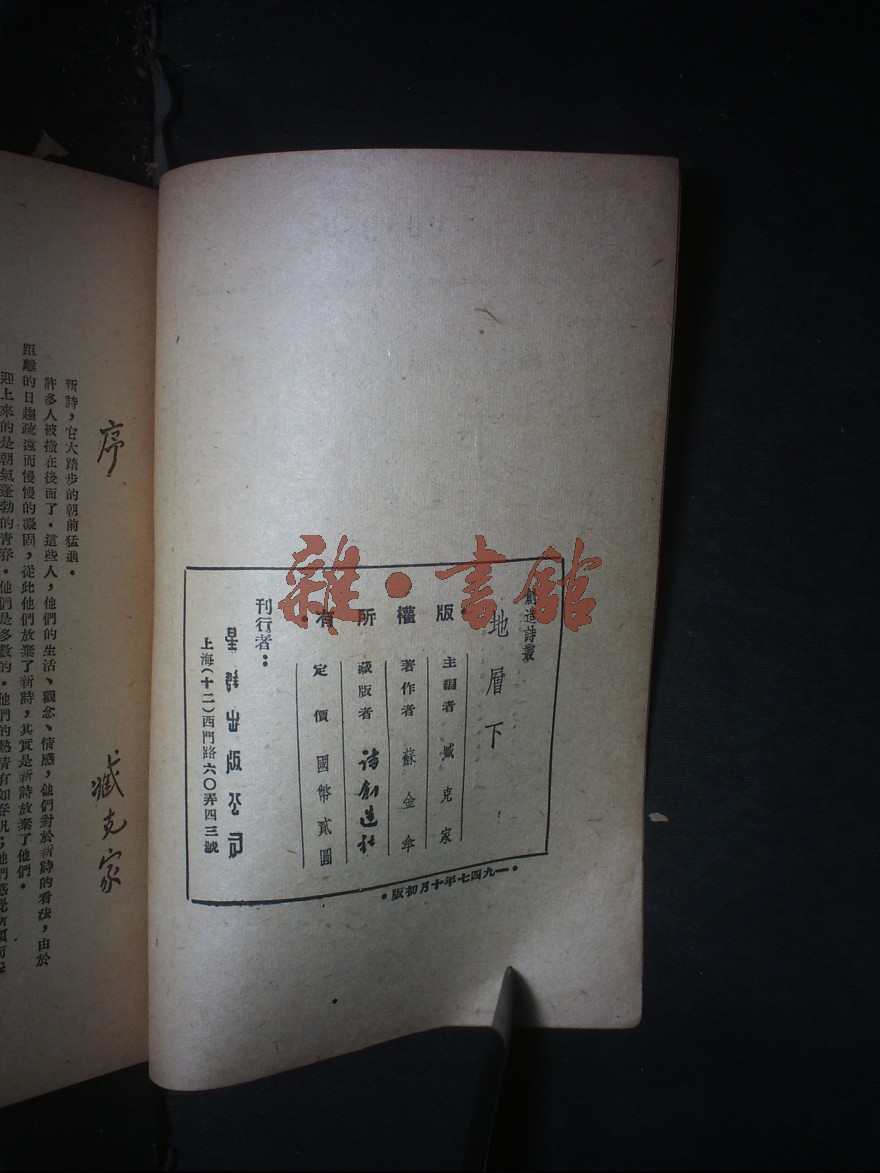 創造詩叢
地層下
版權所有
主編者 臧克家
著作者 蘇金傘
藏版者 詩創造社
定價 國幣貳圓
刊行者：
星群出版公司
上海(十二)西門路六〇弄四三號
·一九四七年十月初版·
雜·書館
序
臧克家
新詩，它大踏步的朝前猛進。
許多人被撇在後面了。這些人，他們的生活、觀念、情感，他們對於新詩的看法，由於
距離的日趨疏遠而慢慢的凝固，從此他們放棄了新詩，其實是新詩放棄了他們。
迎上來的是朝氣蓬勃的青春。他們是多數的。他們的熱情有如春汛；他們感覺